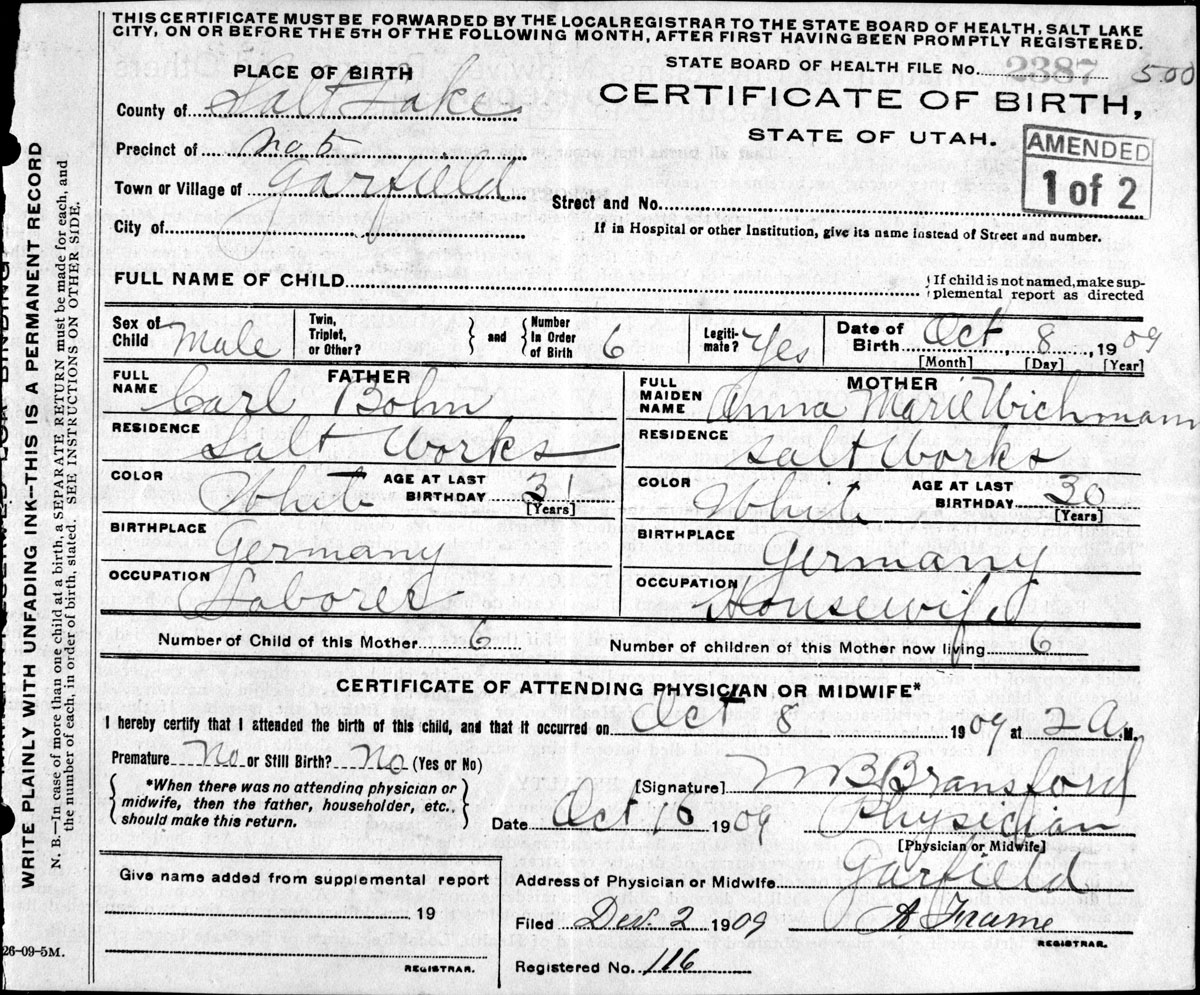 THIS CERTIFICATE MUST BE FORWARDED BY THE LOCAL REGISTRAR TO THE STATE BOARD OF HEALTH, SALT LAKE
CITY, ON OR BEFORE THE 5TH OF THE FOLLOWING MONTH, AFTER FIRST HAVING BEEN PROMPTLY REGISTERED.
STATE BOARD OF HEALTH FILE No. 2387 500
PLACE OF BIRTH
CERTIFICATE OF BIRTH,
STATE OF UTAH.
AMENDED
1 of 2
County of Salt Lake
Precinct of No 5
Town or Village of Garfield
Street and No.
City of
If in Hospital or other Institution, give its name instead of Street and number.
FULL NAME OF CHILD
{If child is not named, make sup-
plemental report as directed
Sex of Child Male
Twin, Triplet, or Other? } and { Number In Order of Birth 6
Legiti-mate? Yes
Date of Birth Oct, 8, 1909
[Month] [Day] [Year]
FATHER
FULL NAME Carl Bohn
RESIDENCE Salt Works
COLOR White AGE AT LAST BIRTHDAY 31
[Years]
BIRTHPLACE Germany
OCCUPATION Laborer
MOTHER
FULL MAIDEN NAME Anna Marie Wichmann
RESIDENCE Salt Works
COLOR White AGE AT LAST BIRTHDAY 30
[Years]
BIRTHPLACE Germany
OCCUPATION Housewife
Number of Child of this Mother 6 Number of children of this Mother now living 6
CERTIFICATE OF ATTENDING PHYSICIAN OR MIDWIFE*
I hereby certify that I attended the birth of this child, and that it occurred on Oct 8 1909 at 2 A. M.
Premature No or Still Birth? No (Yes or No)
{*When there was no attending physician or
midwife, then the father, householder, etc.,
should make this return.}
[Signature] B Bransford
Date Oct 16 1909 Physician
[Physician or Midwife]
Give name added from supplemental report
19
REGISTRAR.
Address of Physician or Midwife Garfield
Filed Dec. 2 1909 A Frame
REGISTRAR.
Registered No. 116
26-09-5M.
WRITE PLAINLY WITH UNFADING INK—THIS IS A PERMANENT RECORD
N. B.—In case of more than one child at a birth, a SEPARATE RETURN must be made for each, and
the number of each, in order of birth, stated. SEE INSTRUCTIONS ON OTHER SIDE.